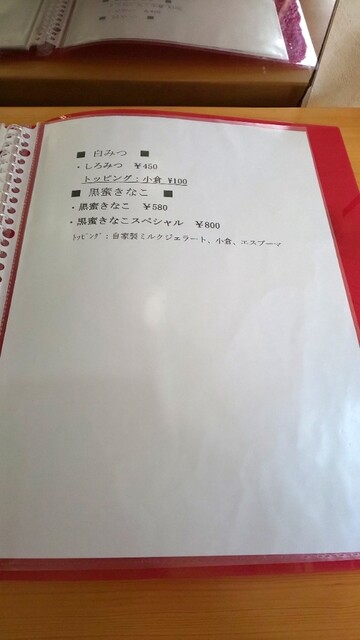 ■ 白みつ ■
・しろみつ ¥450
トッピング:小倉 ¥100
■ 黒蜜きなこ ■
・黒蜜きなこ ¥580
・黒蜜きなこスペシャル ¥800
ﾄｯﾋﾟﾝｸﾞ:自家製ミルクジェラート、小倉、エスプーマ